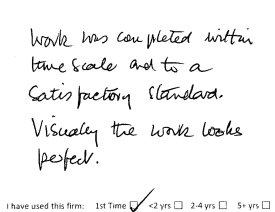 Work was completed within
time scale and to a
satisfactory standard.
Visually the work looks
perfect.
I have used this firm: 1st Time ☑ <2 yrs ☐ 2-4 yrs ☐ 5+ yrs ☐